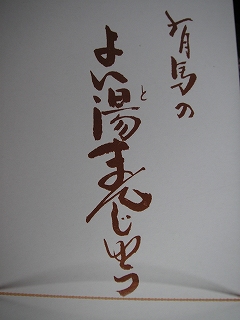 有馬の
よい湯まんじゅう
と